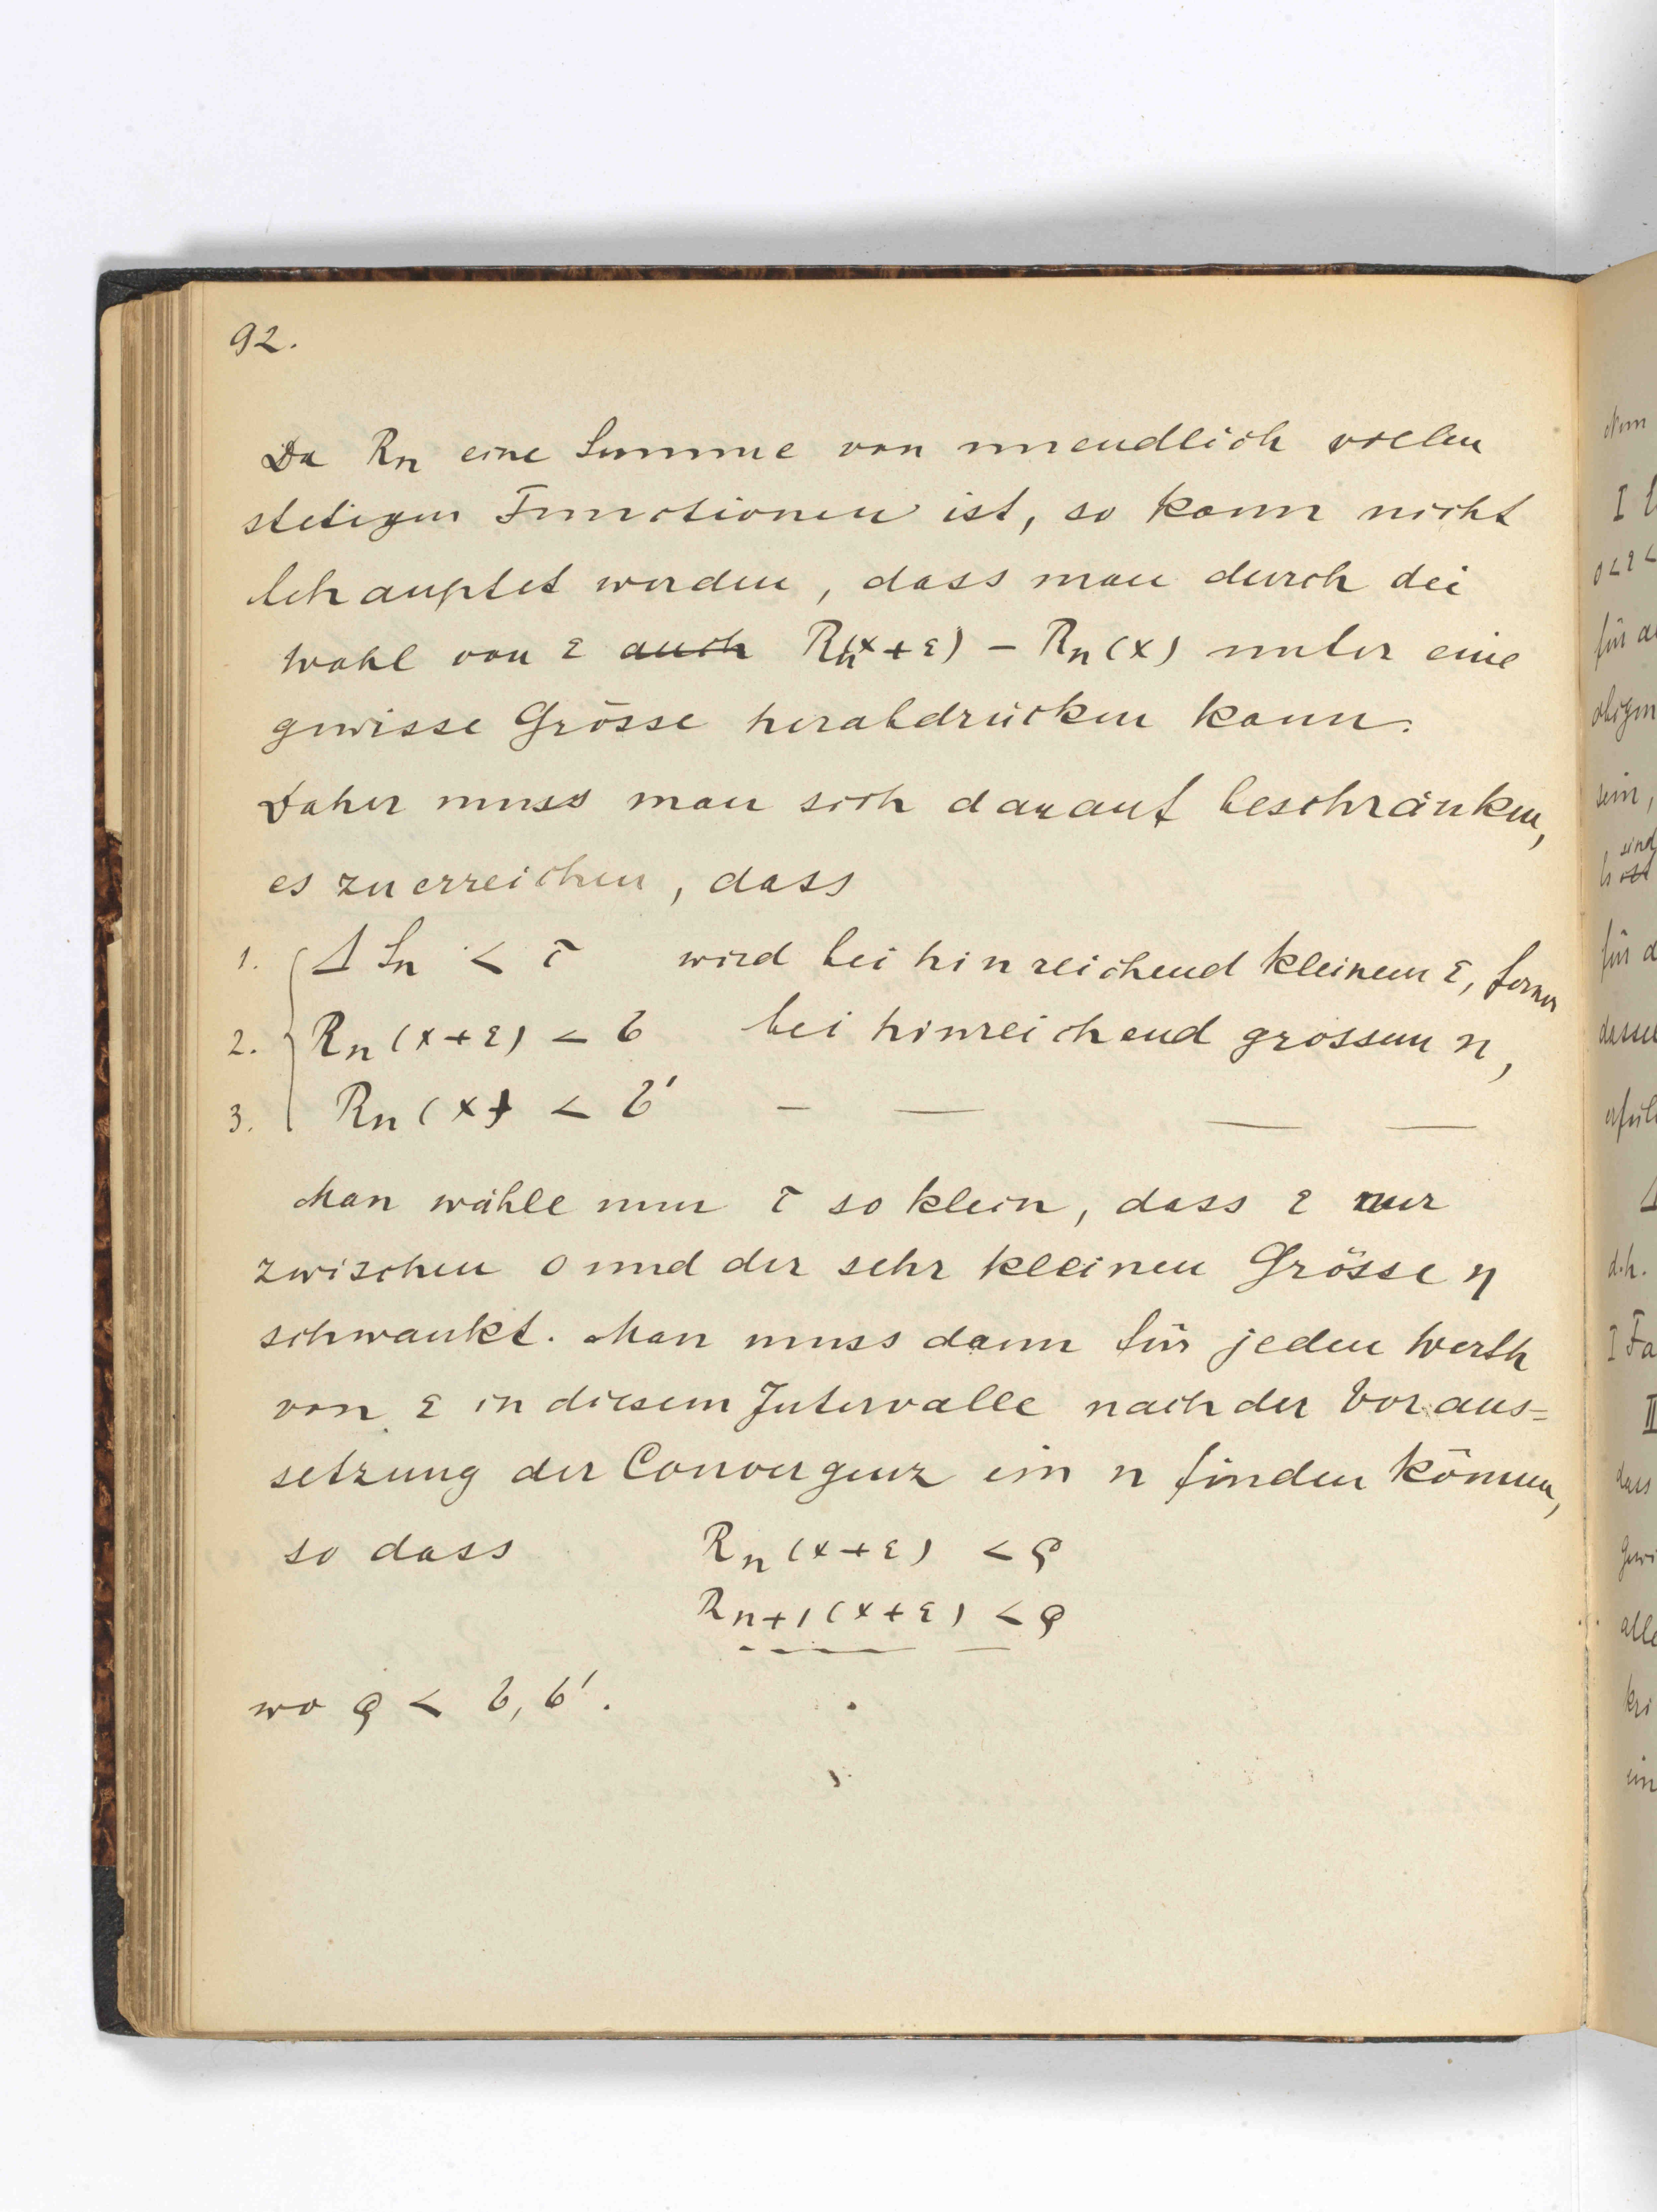 92.
Da Rn eine Summe von unendlich vielen
stetigen Functionen ist, so kann nicht
behauptet werden, dass man durch die
Wahl von ε auch Rn(x+ε) – Rn(x) unter eine
gewisse Grösse herabdrücken kann.
Daher muss man sich darauf beschränken,
es zu erreichen, dass
1. Δ Sn < τ wird bei hinreichend kleinem ε, ferner
2. Rn(x+ε) < σ bei hinreichend grossem n,
3. Rn(x) < σ' – — — —
Man wähle nun τ so klein, dass ε nur
zwischen 0 und der sehr kleinen Grösse η
schwankt. Man muss dann für jeden Werth
von ε in diesem Intervalle nach der Voraus=
setzung der Convergenz ein n finden können,
so dass Rn(x+ε) < ρ
Rn+1(x+ε) < ρ
- — — —
wo ρ < σ, σ'.
Nun
0<ε<
für
obigen
sein,
sind
ist
für d
d.h.
I Fa
II
dass
alle
ein